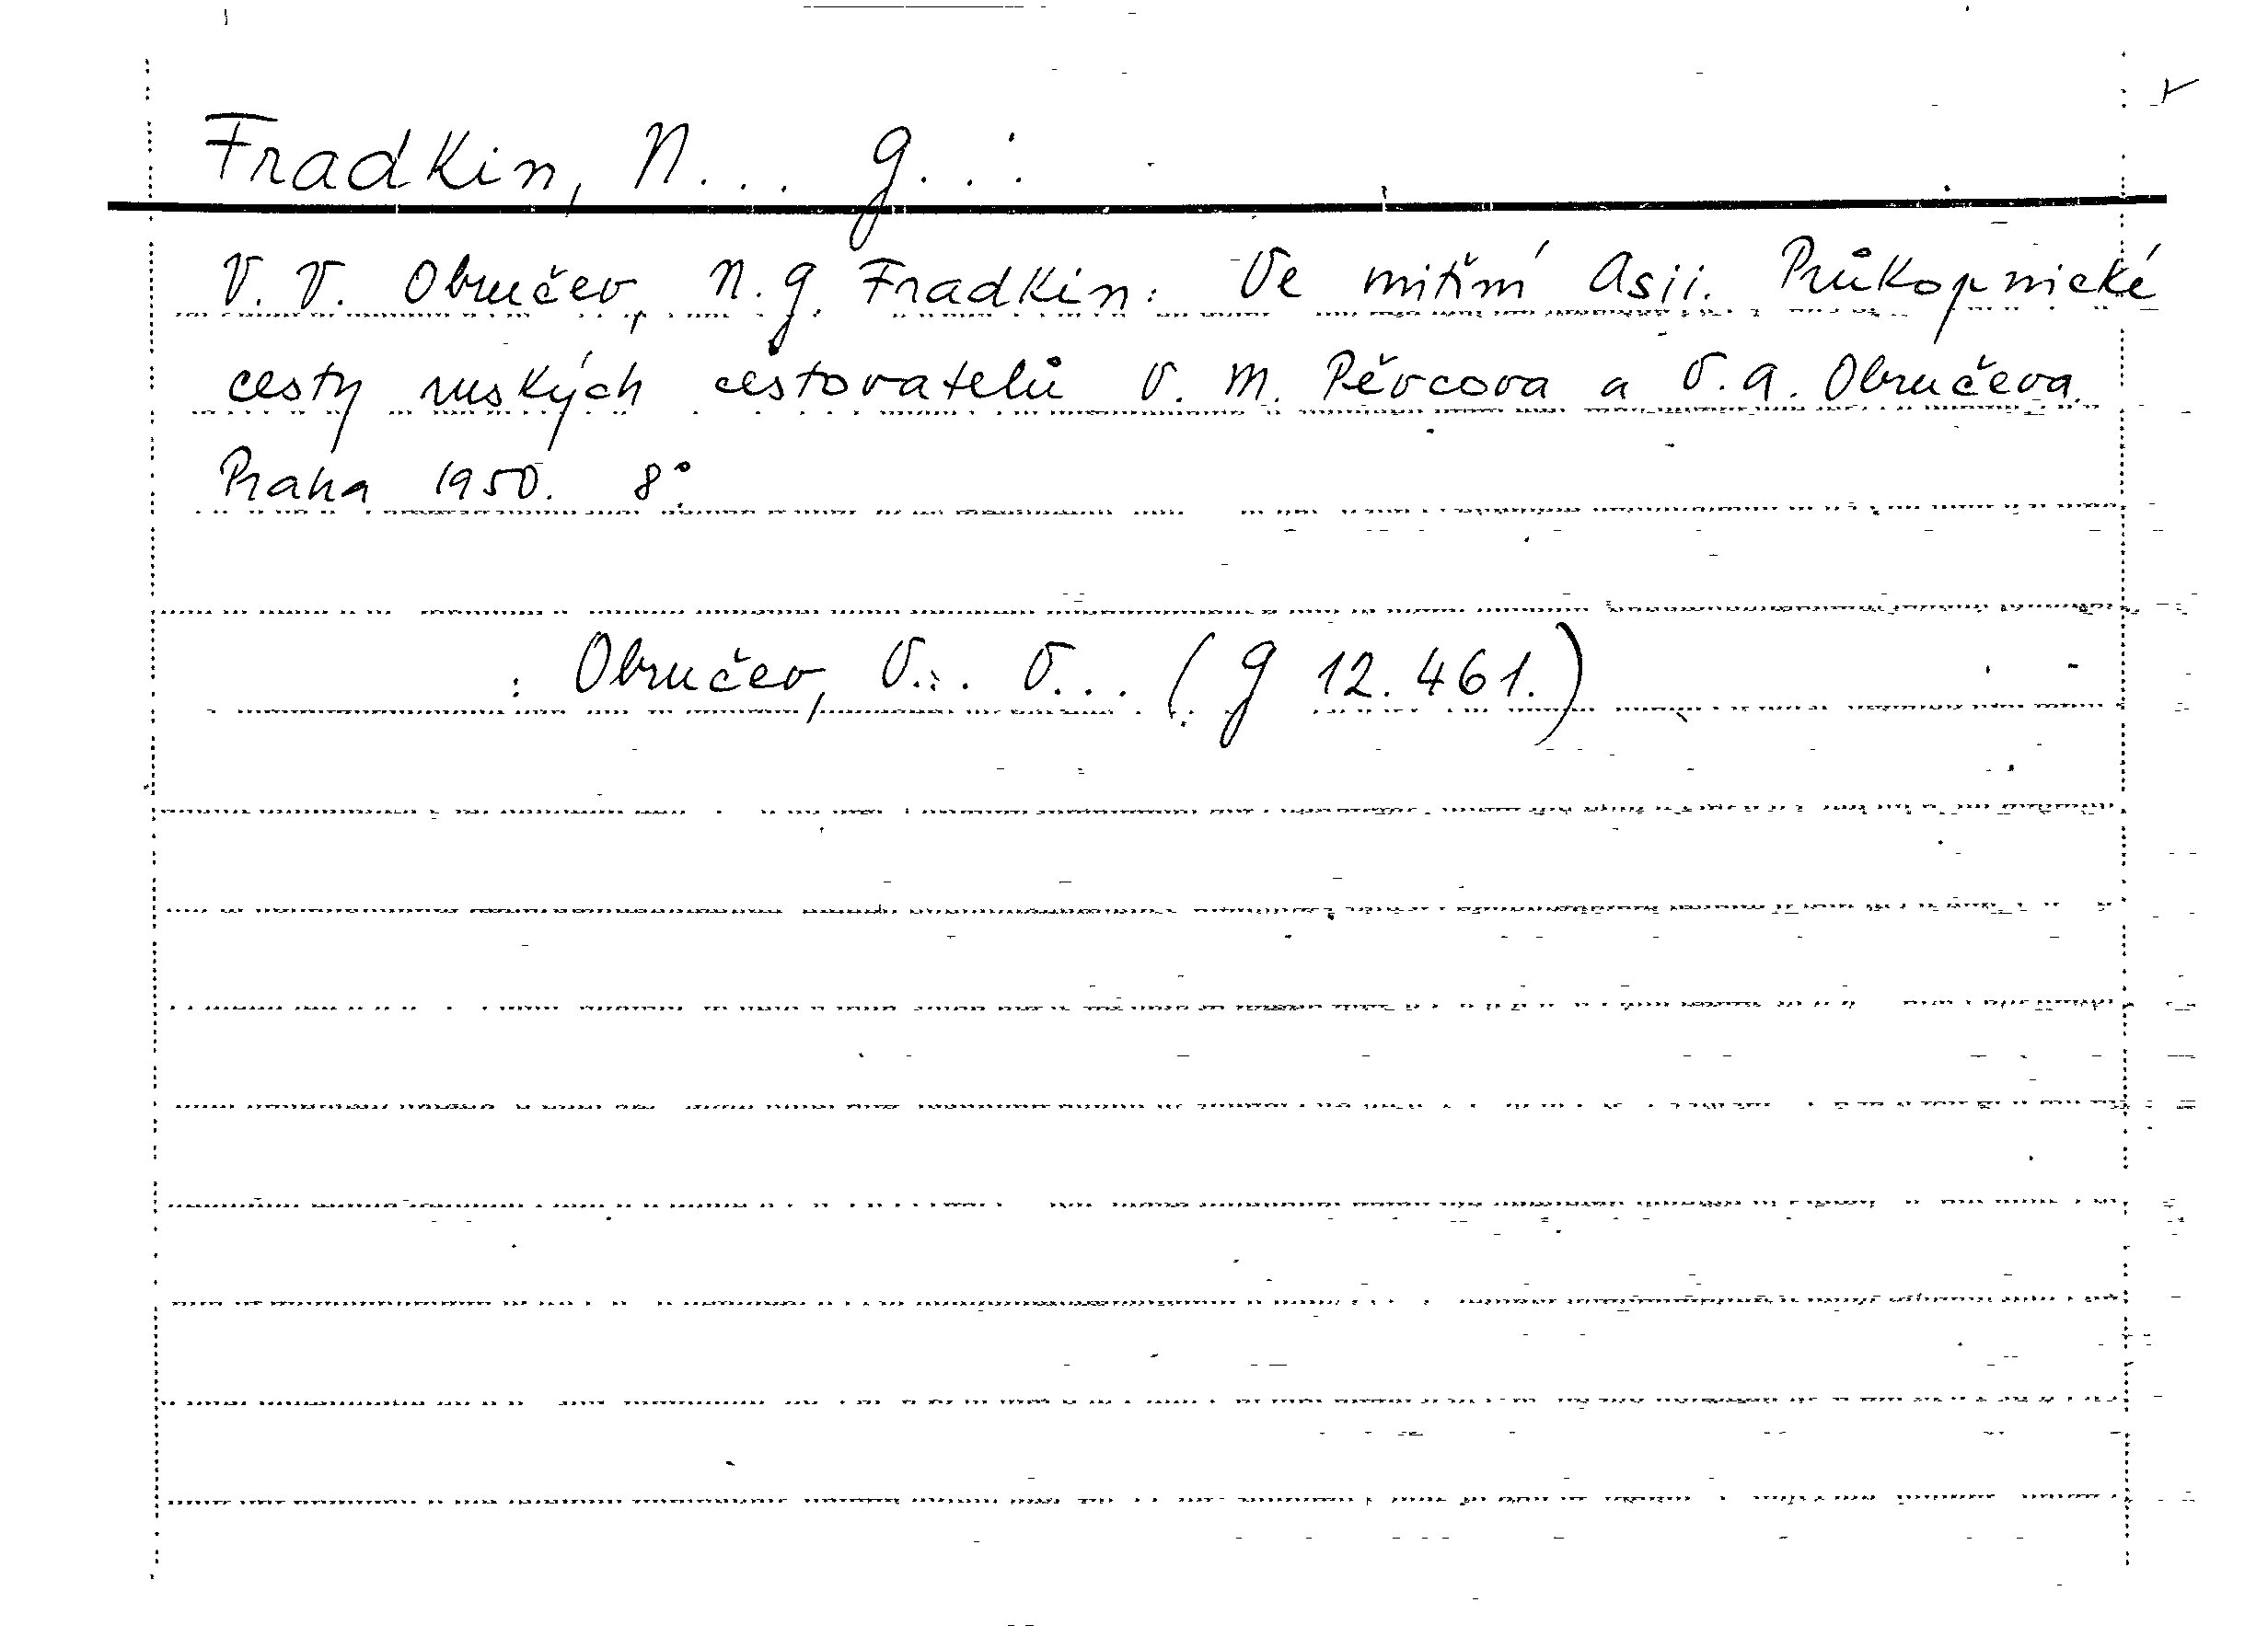 Fradkin, N... G...
V. V. Obručev, N. G. Fradkin: Ve vnitřní Asii. Průkopnické
cesty ruských cestovatelů V. M. Pěvcova a V. A. Obručeva.
Praha 1950. 8°.
: Obručev, V... V... (G 12.461.)